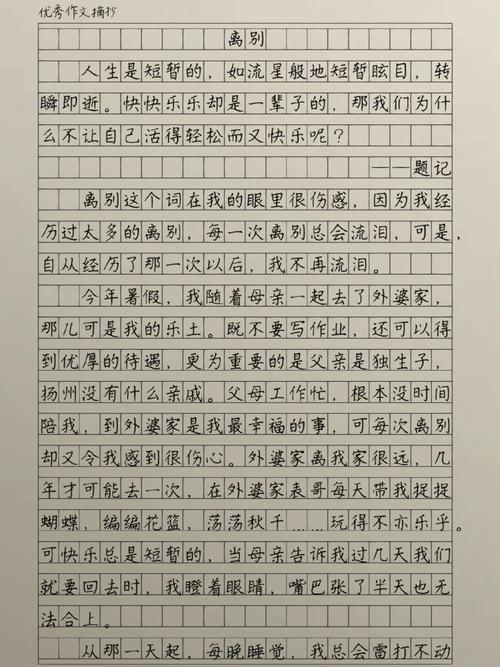 优秀作文摘抄
离别
人生是短暂的，如流星般地短暂眩目，转
瞬即逝。快快乐乐却是一辈子的，那我们为什
么不让自己活得轻松而又快乐呢？
——题记
离别这个词在我的眼里很伤感，因为我经
历过太多的离别，每一次离别总会流泪，可是，
自从经历了那一次以后，我不再流泪。
今年暑假，我随着母亲一起去了外婆家，
那儿可是我的乐土。既不要写作业，还可以得
到优厚的待遇，更为重要的是父亲是独生子，
扬州没有什么亲戚。父母工作忙，根本没时间
陪我，到外婆家是我最幸福的事，可每次离别
却又令我感到很伤心。外婆家离我家很远，几
年才可能去一次，在外婆家表哥每天带我捉捉
蝴蝶，编编花篮，荡荡秋千……玩得不亦乐乎。
可快乐总是短暂的，当母亲告诉我过几天我们
就要回去时，我瞪着眼睛，嘴巴张了半天也无
法合上。
从那一天起，每晚睡觉，我总会雷打不动